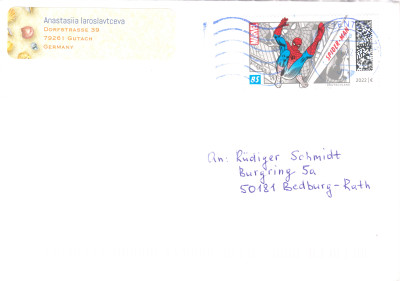 Anastasiia Iaroslavtceva
Dorfstrasse 39
79261 Gutach
Germany
SPIDER-MAN
85
2022
An: Rüdiger Schmidt
Burgring 5a
50181 Bedburg-Rath